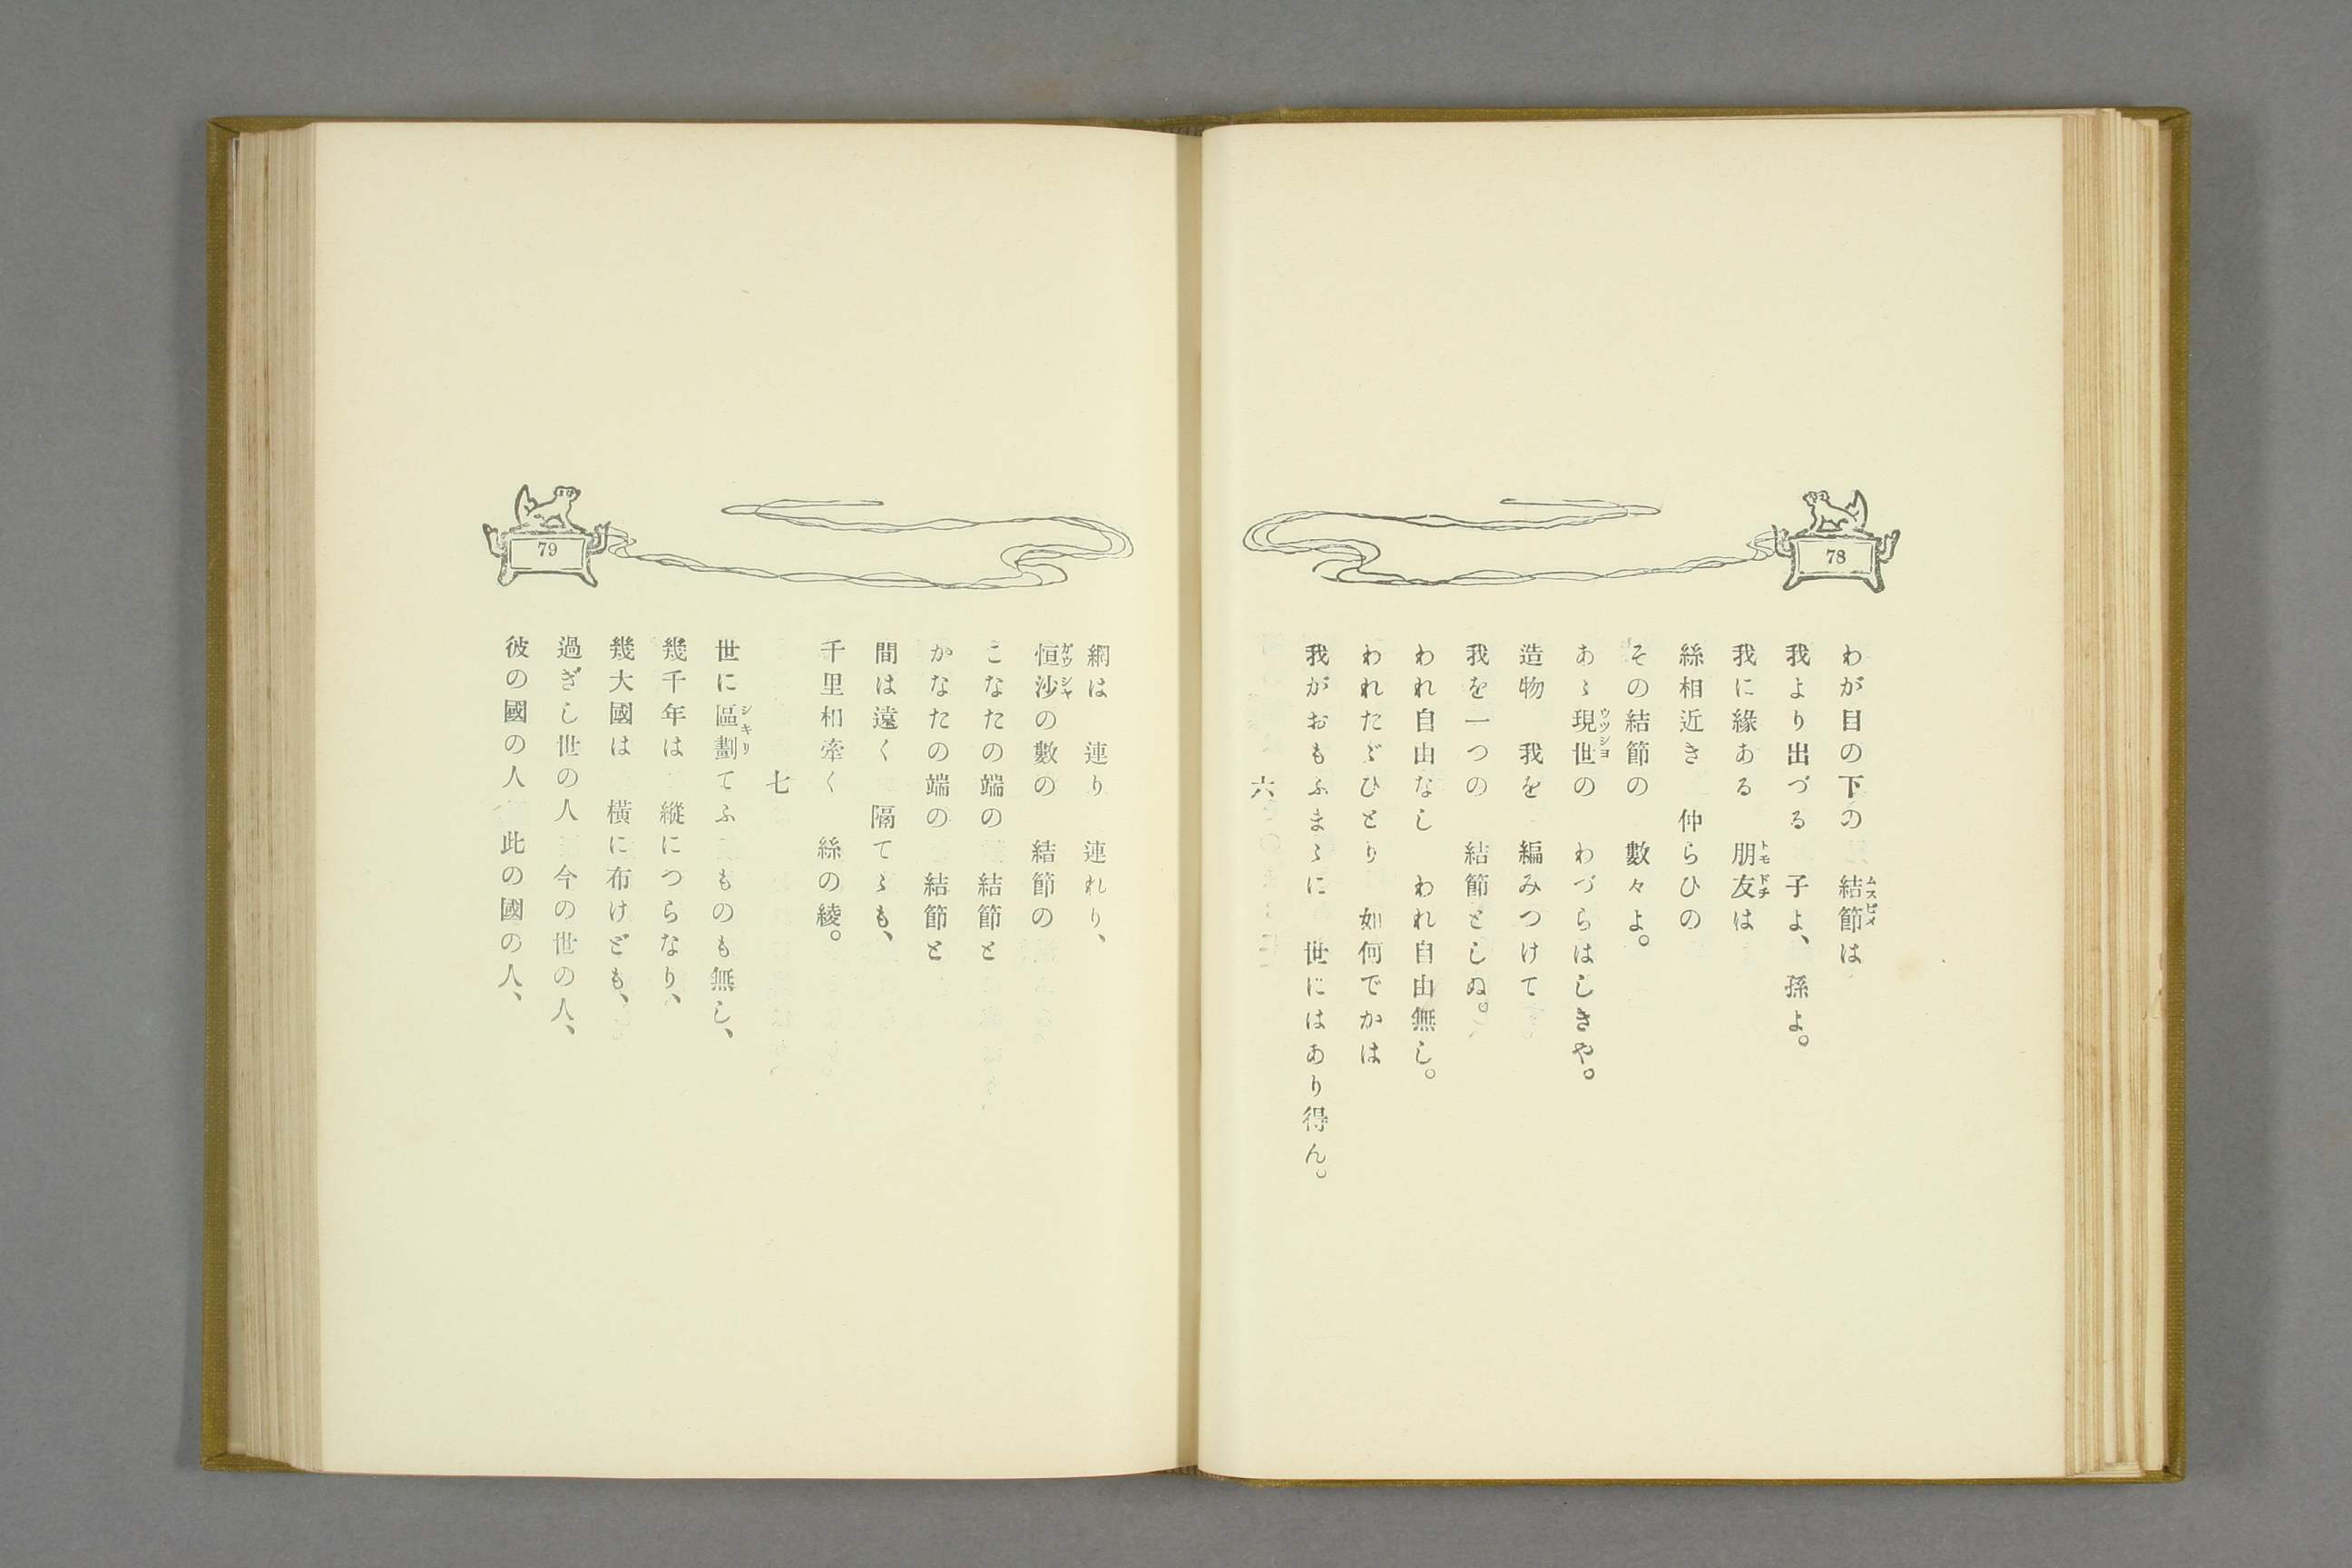 78
わが目の下の　結節は
我より出づる　子よ、孫よ。
我に緣ある　朋友は
絲相近き　仲らひの
その結節の　數々よ。
あゝ現世の　わづらはしきや。
造物　我を　編みつけて
我を一つの　結節としぬ。
われ自由なし　われ自由無し。
われたゞひとり　如何でかは
我がおもふまゝに　世にはあり得ん。
六
79
網は　連り　連れり、
恒沙の數の　結節の
こなたの端の　結節と
かなたの端の　結節と
間は遠く　隔てゝも、
千里相牽く　絲の綾。
七
世に區劃てふ　ものも無し、
幾千年は　縱につらなり、
幾大國は　橫に布けども、
過ぎし世の人　今の世の人、
彼の國の人　此の國の人、